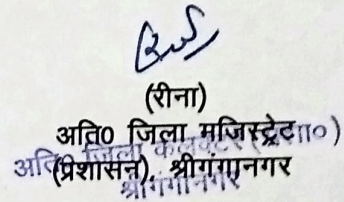 (रीना)
अति0 जिला मजिस्ट्रेट
(प्रशासन), श्रीगंगानगर
अति जिला कलक्टर (प्रशा०)
श्रीगंगानगर